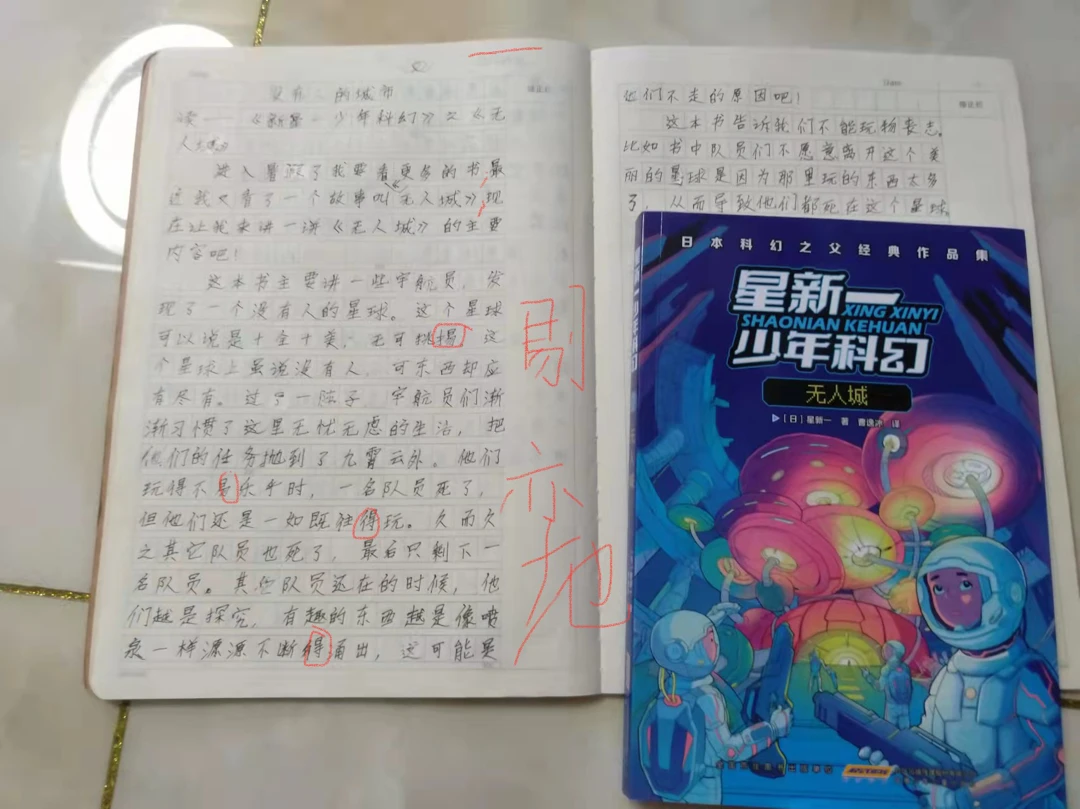 没有人的城市
读——《新星一少年科幻》之《无
人城》
进入暑假了我要看更多的书,最
近我看了一个故事叫《无人城》,现
在让我来讲一讲《无人城》的主要
内容吧!
这本书主要讲一些宇航员,发
现了一个没有人的星球。这个星球
可以说是十全十美,无可挑揭,这
个星球上虽说没有人,可东西却应
有尽有。过了一阵子,宇航员们渐
渐习惯了这里无忧无虑的生活,把
他们的任务抛到了九霄云外。他们
玩得不是乐乎时,一名队员死了,
但他们还是一如既往得玩。久而久
之其它队员也死了,最后只剩下一
名队员。其些队员还在的时候,他
们越是探究,有趣的东西越是像喷
泉一样源源不断得涌出,这可能是
剔
亦
地
Date
他们不走的原因吧!
这本书告诉我们不能玩物丧志。
比如书中队员们不愿意离开这个美
丽的星球是因为那里玩的东西太多
了,从而导致他们都死在这个星球
日本科幻之父经典作品集
星新一
XING XINYI
SHAONIAN KEHUAN
少年科幻
无人城
[日]星新一 著 曹逸冰 译